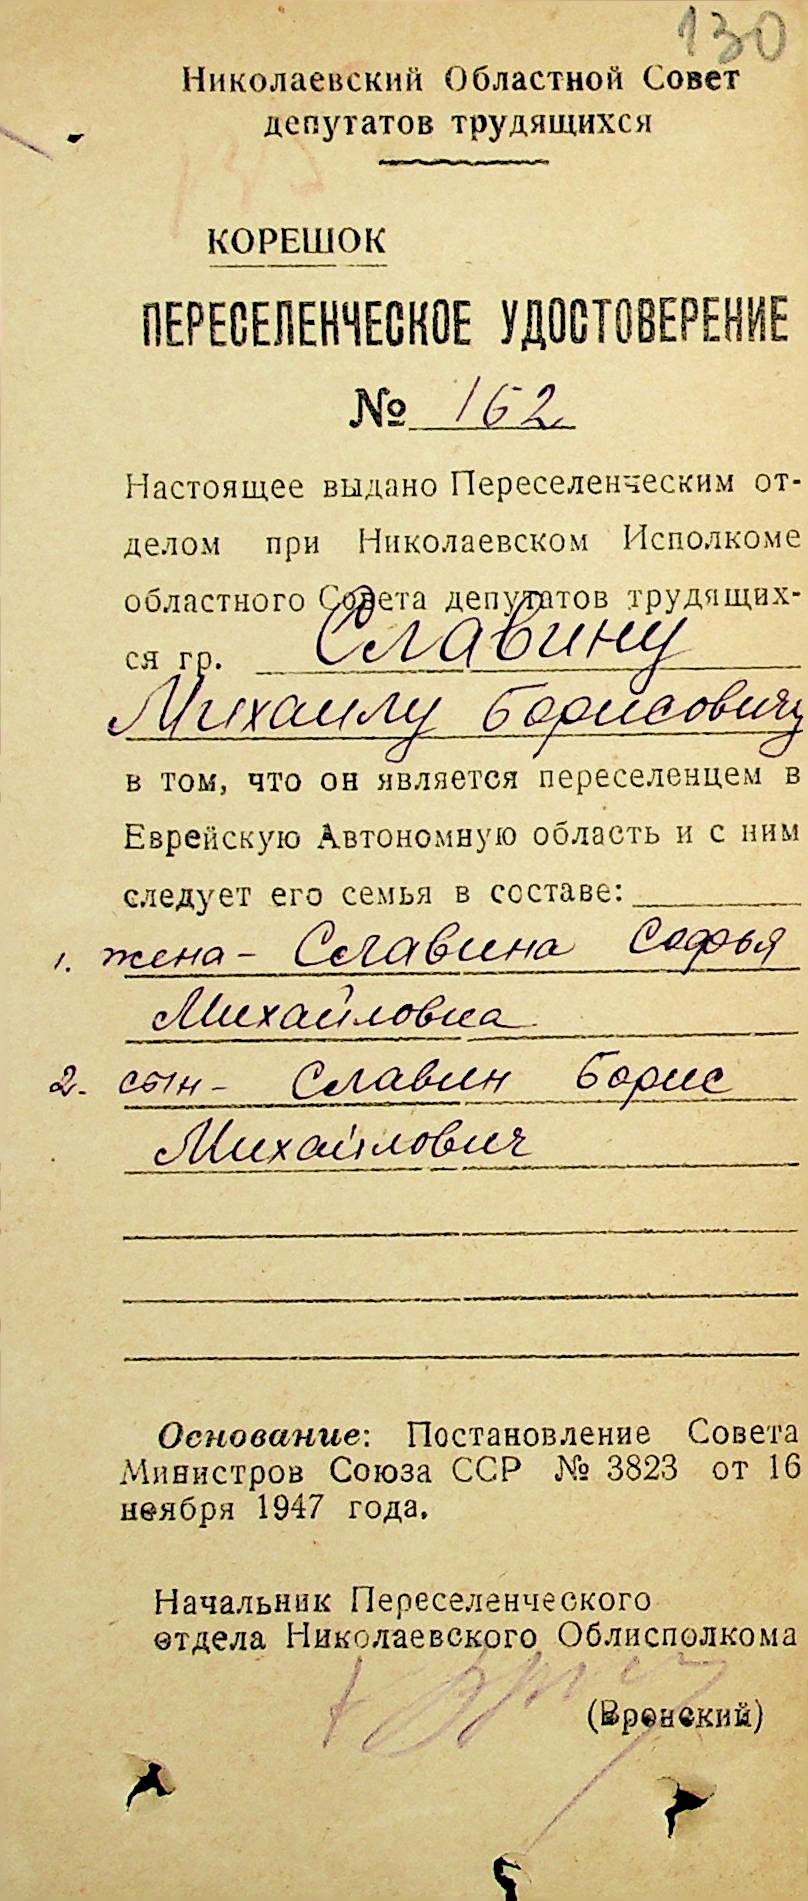 130
Николаевский Областной Совет
депутатов трудящихся
КОРЕШОК
ПЕРЕСЕЛЕНЧЕСКОЕ УДОСТОВЕРЕНИЕ
№ 162
Настоящее выдано Переселенческим от-
делом при Николаевском Исполкоме
областного Совета депутатов трудящих-
ся гр. Славину
Михаилу Борисовичу
в том, что он является переселенцем в
Еврейскую Автономную область и с ним
следует его семья в составе:
1. жена - Славина Софья
Михайловна
2. сын - Славин Борис
Михайлович
Основание: Постановление Совета
Министров Союза ССР № 3823 от 16
ноября 1947 года.
Начальник Переселенческого
отдела Николаевского Облисполкома
(Вронский)